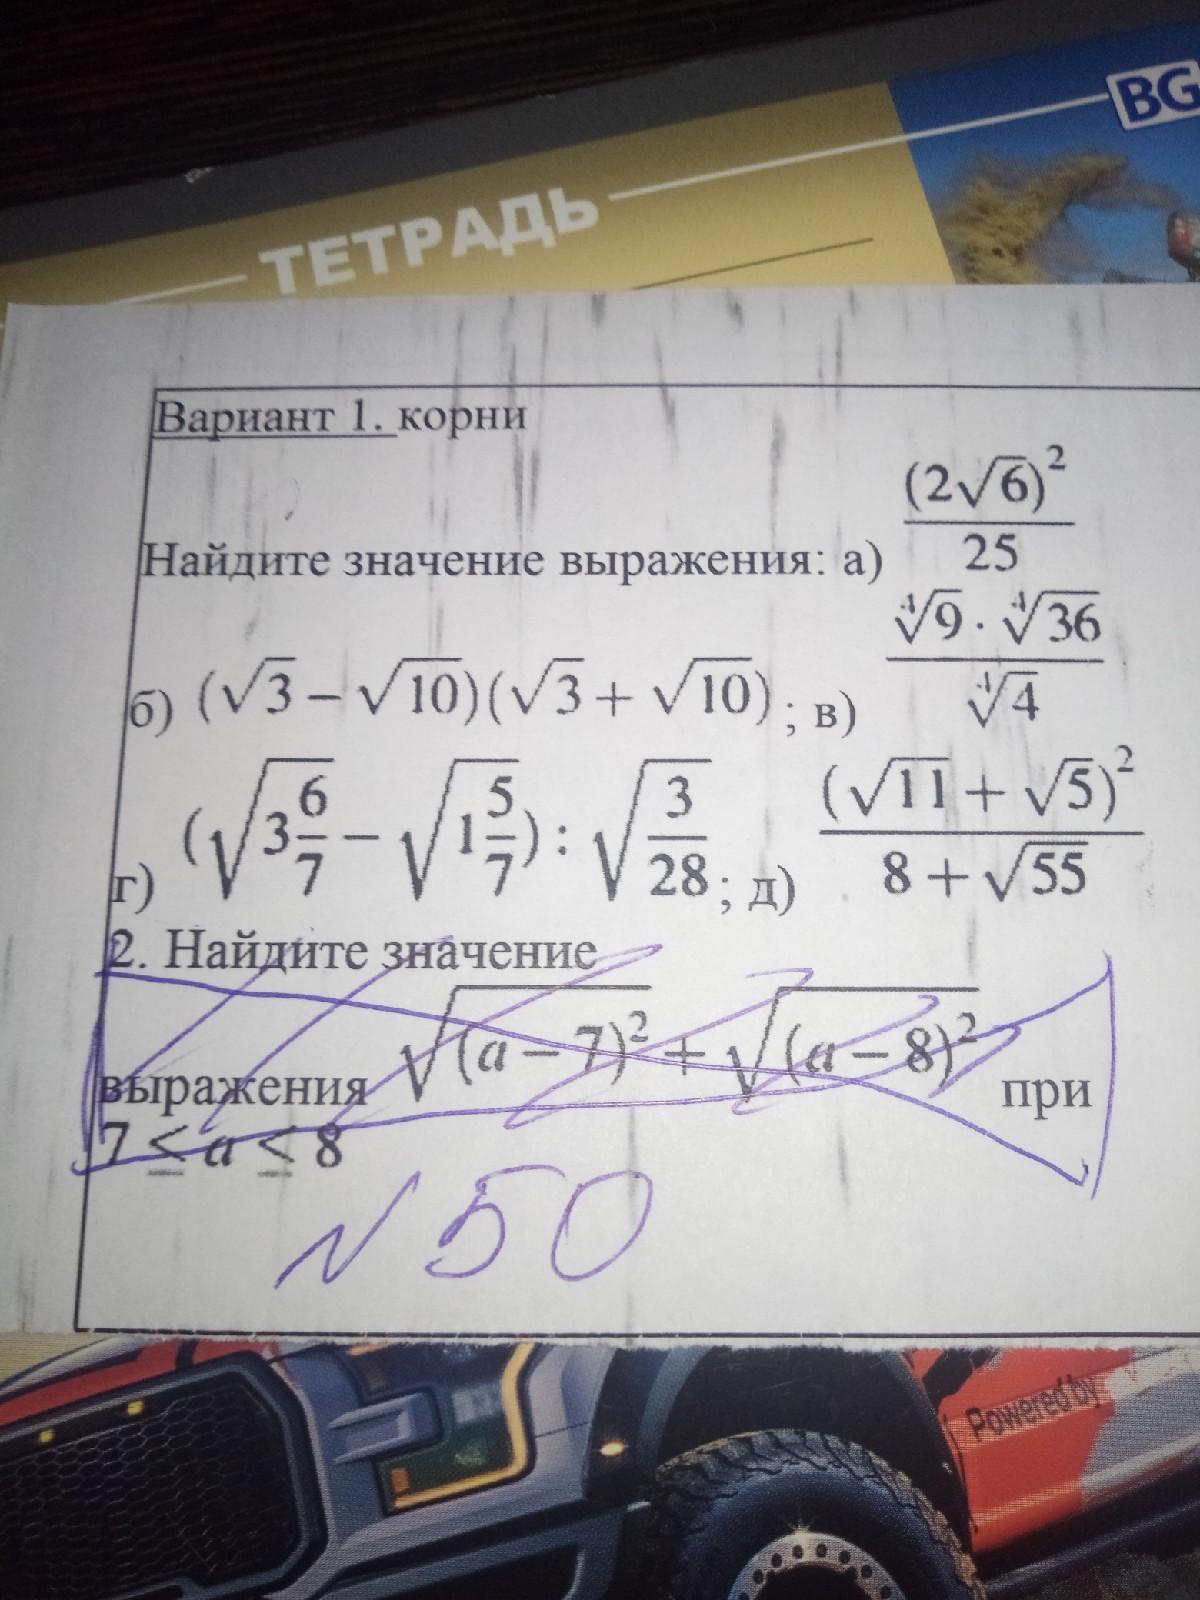 BG
ТЕТРАДЬ
Вариант 1. корни
Найдите значение выражения: а) (2√6)² / 25
б) (√3 − √10)(√3 + √10) ; в) ∜9 · ∜36 / ∜4
г) (√3 6/7 − √1 5/7) : √3/28 ; д) (√11 + √5)² / 8 + √55
2. Найдите значение
выражения √(a − 7)² + √(a − 8)² при
7 ≤ a ≤ 8
N 50
Powered by